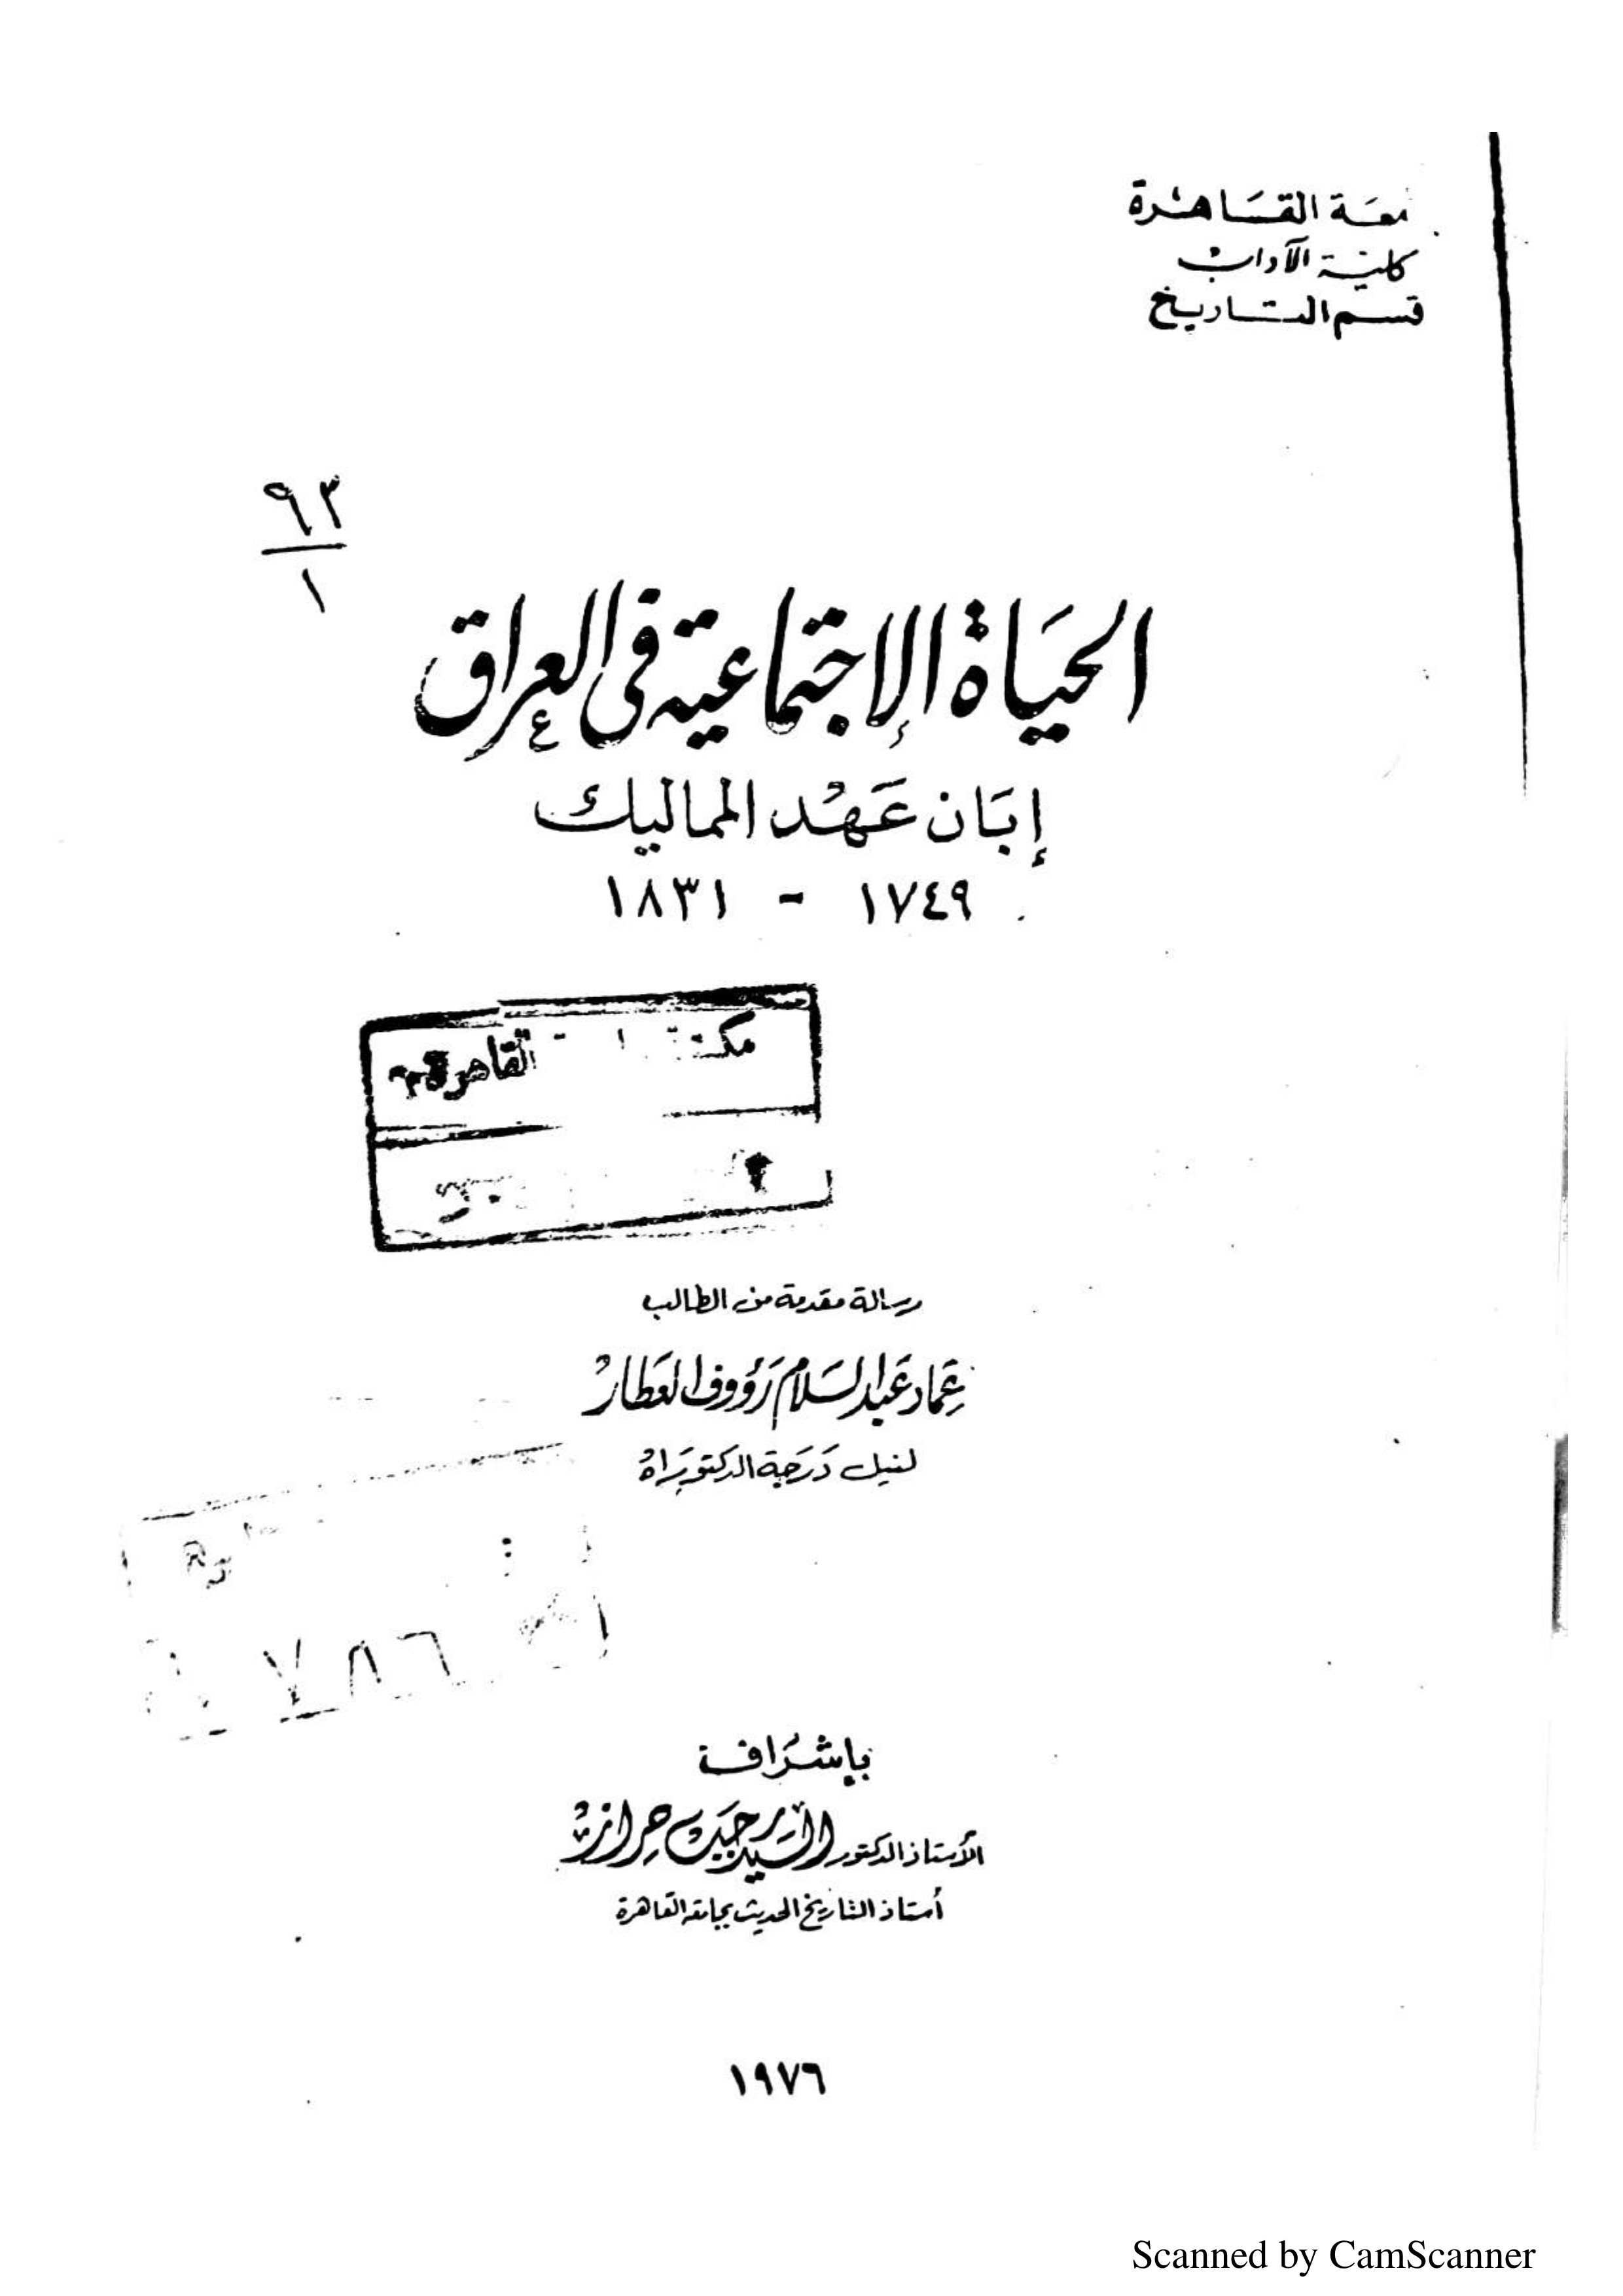 معة القاهرة
كلية الآداب
قسم التاريخ
٩٣
١
الحياة الإجتماعية في العراق
إبان عهد المماليك
١٧٤٩ - ١٨٣١
القاهرة
رسالة مقدمة من الطالب
عماد عبد السلام رؤوف العطار
لنيل درجة الدكتوراه
٧٨٦
بإشراف
الأستاذ الدكتور السيد رجب حراز
أستاذ التاريخ الحديث بجامعة القاهرة
١٩٧٦
Scanned by CamScanner